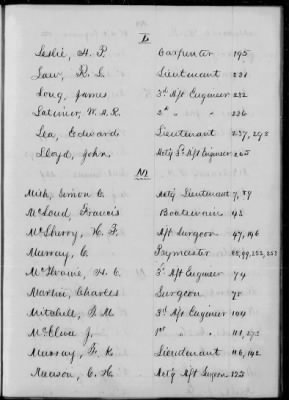 L
Leslie, H. P. Carpenter 195
Law, R. L. Lieutenant 231
Long, James 3d A/st Engineer 232
Latimer, W. A. R. 2d " " 236
Lea, Edward Lieutenant 237, 292
Lloyd, John Act'g 3d A/st Engineer 265
M
Mish, Simon C. Act'g Lieutenant 7, 29
McLoud, Francis Boatswain 45
McSherry, H. F. A/st Surgeon 47, 146
Murray, C. Paymaster
McIlvaine, H. C. 3d A/st Engineer 74
Martin, Charles Surgeon 75
Mitchell, J. M. 3d A/st Engineer 104
McElwee J. 1st " "
Murray, F. K. Lieutenant 116, 142
Mauson, C. H. Act'g A/st Surgeon 123